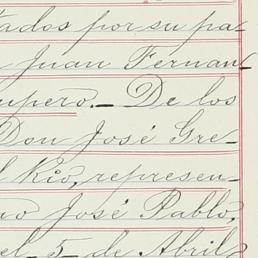 tados por su pa-
Juan Fernan-
upero.- De los
Don José Gre-
l Rio, represen-
no José Pablo,
el 5 de Abril